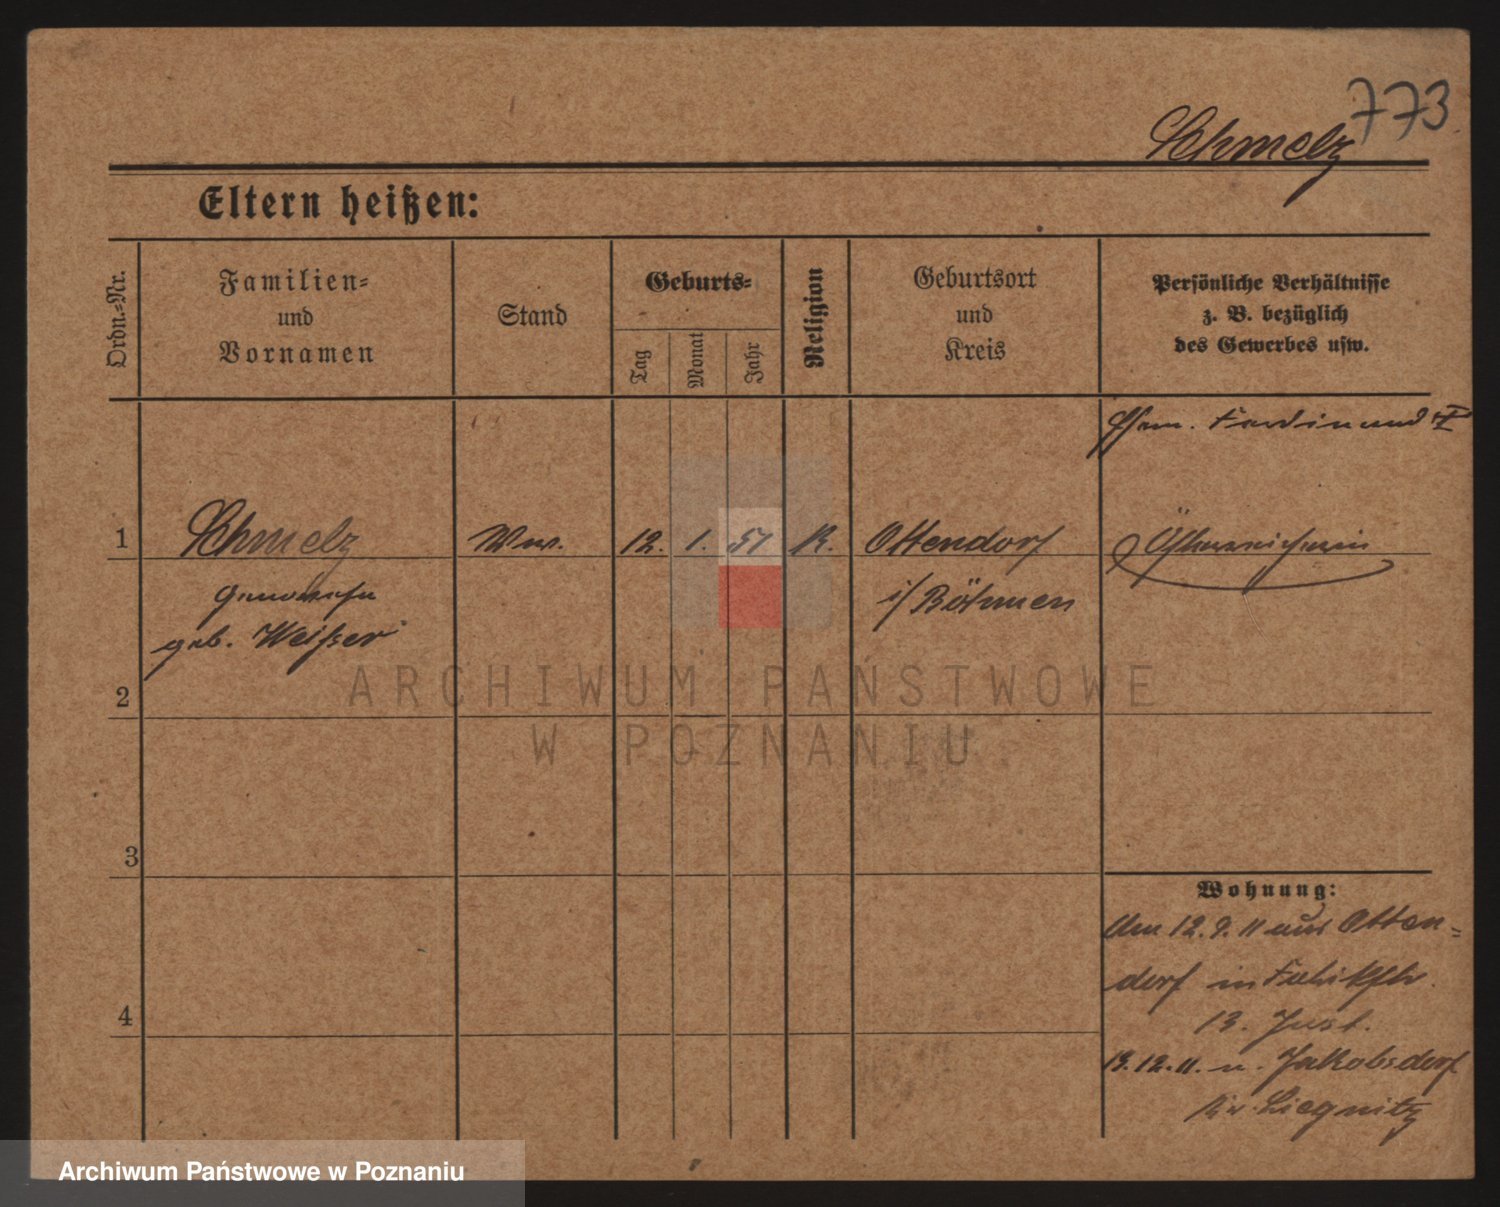 773
Schmelz
Eltern heißen:
Ordn.-Nr.
Familien-
und
Vornamen
Stand
Geburts-
Tag
Monat
Jahr
Religion
Geburtsort
und
Kreis
Persönliche Verhältnisse
z. B. bezüglich
des Gewerbes usw.
Ehem. Ferdinand †
1 Schmelz Ww. 12. 1. 51 K. Ottendorf Österreicherin
Genovefa i/Böhmen
geb. Weißer
2
ARCHIWUM PAŃSTWOWE
W POZNANIU
3
Wohnung:
Am 12. 9. 11 aus Otten=
dorf in Fabrikstr.
13.
4
13. 12. 11. n. Jakobsdorf
Kr. Liegnitz
Archiwum Państwowe w Poznaniu